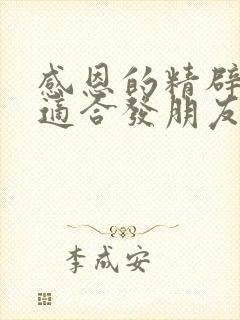 感恩的精辟
適合發朋友
李成安